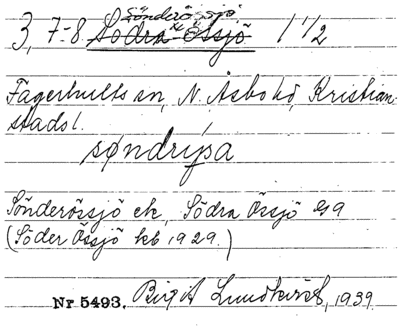 Sönderössjö
3, 7-8 Södra Össjö 1 1/2
Fagerhults sn, N. Åsbo hd, Kristian-
stads l.
søndrípa
Sönderössjö ek, Södra Össjö
(Söder Össjö kb 1929.)
Nr 5493. Birgit Lundkvist, 1939